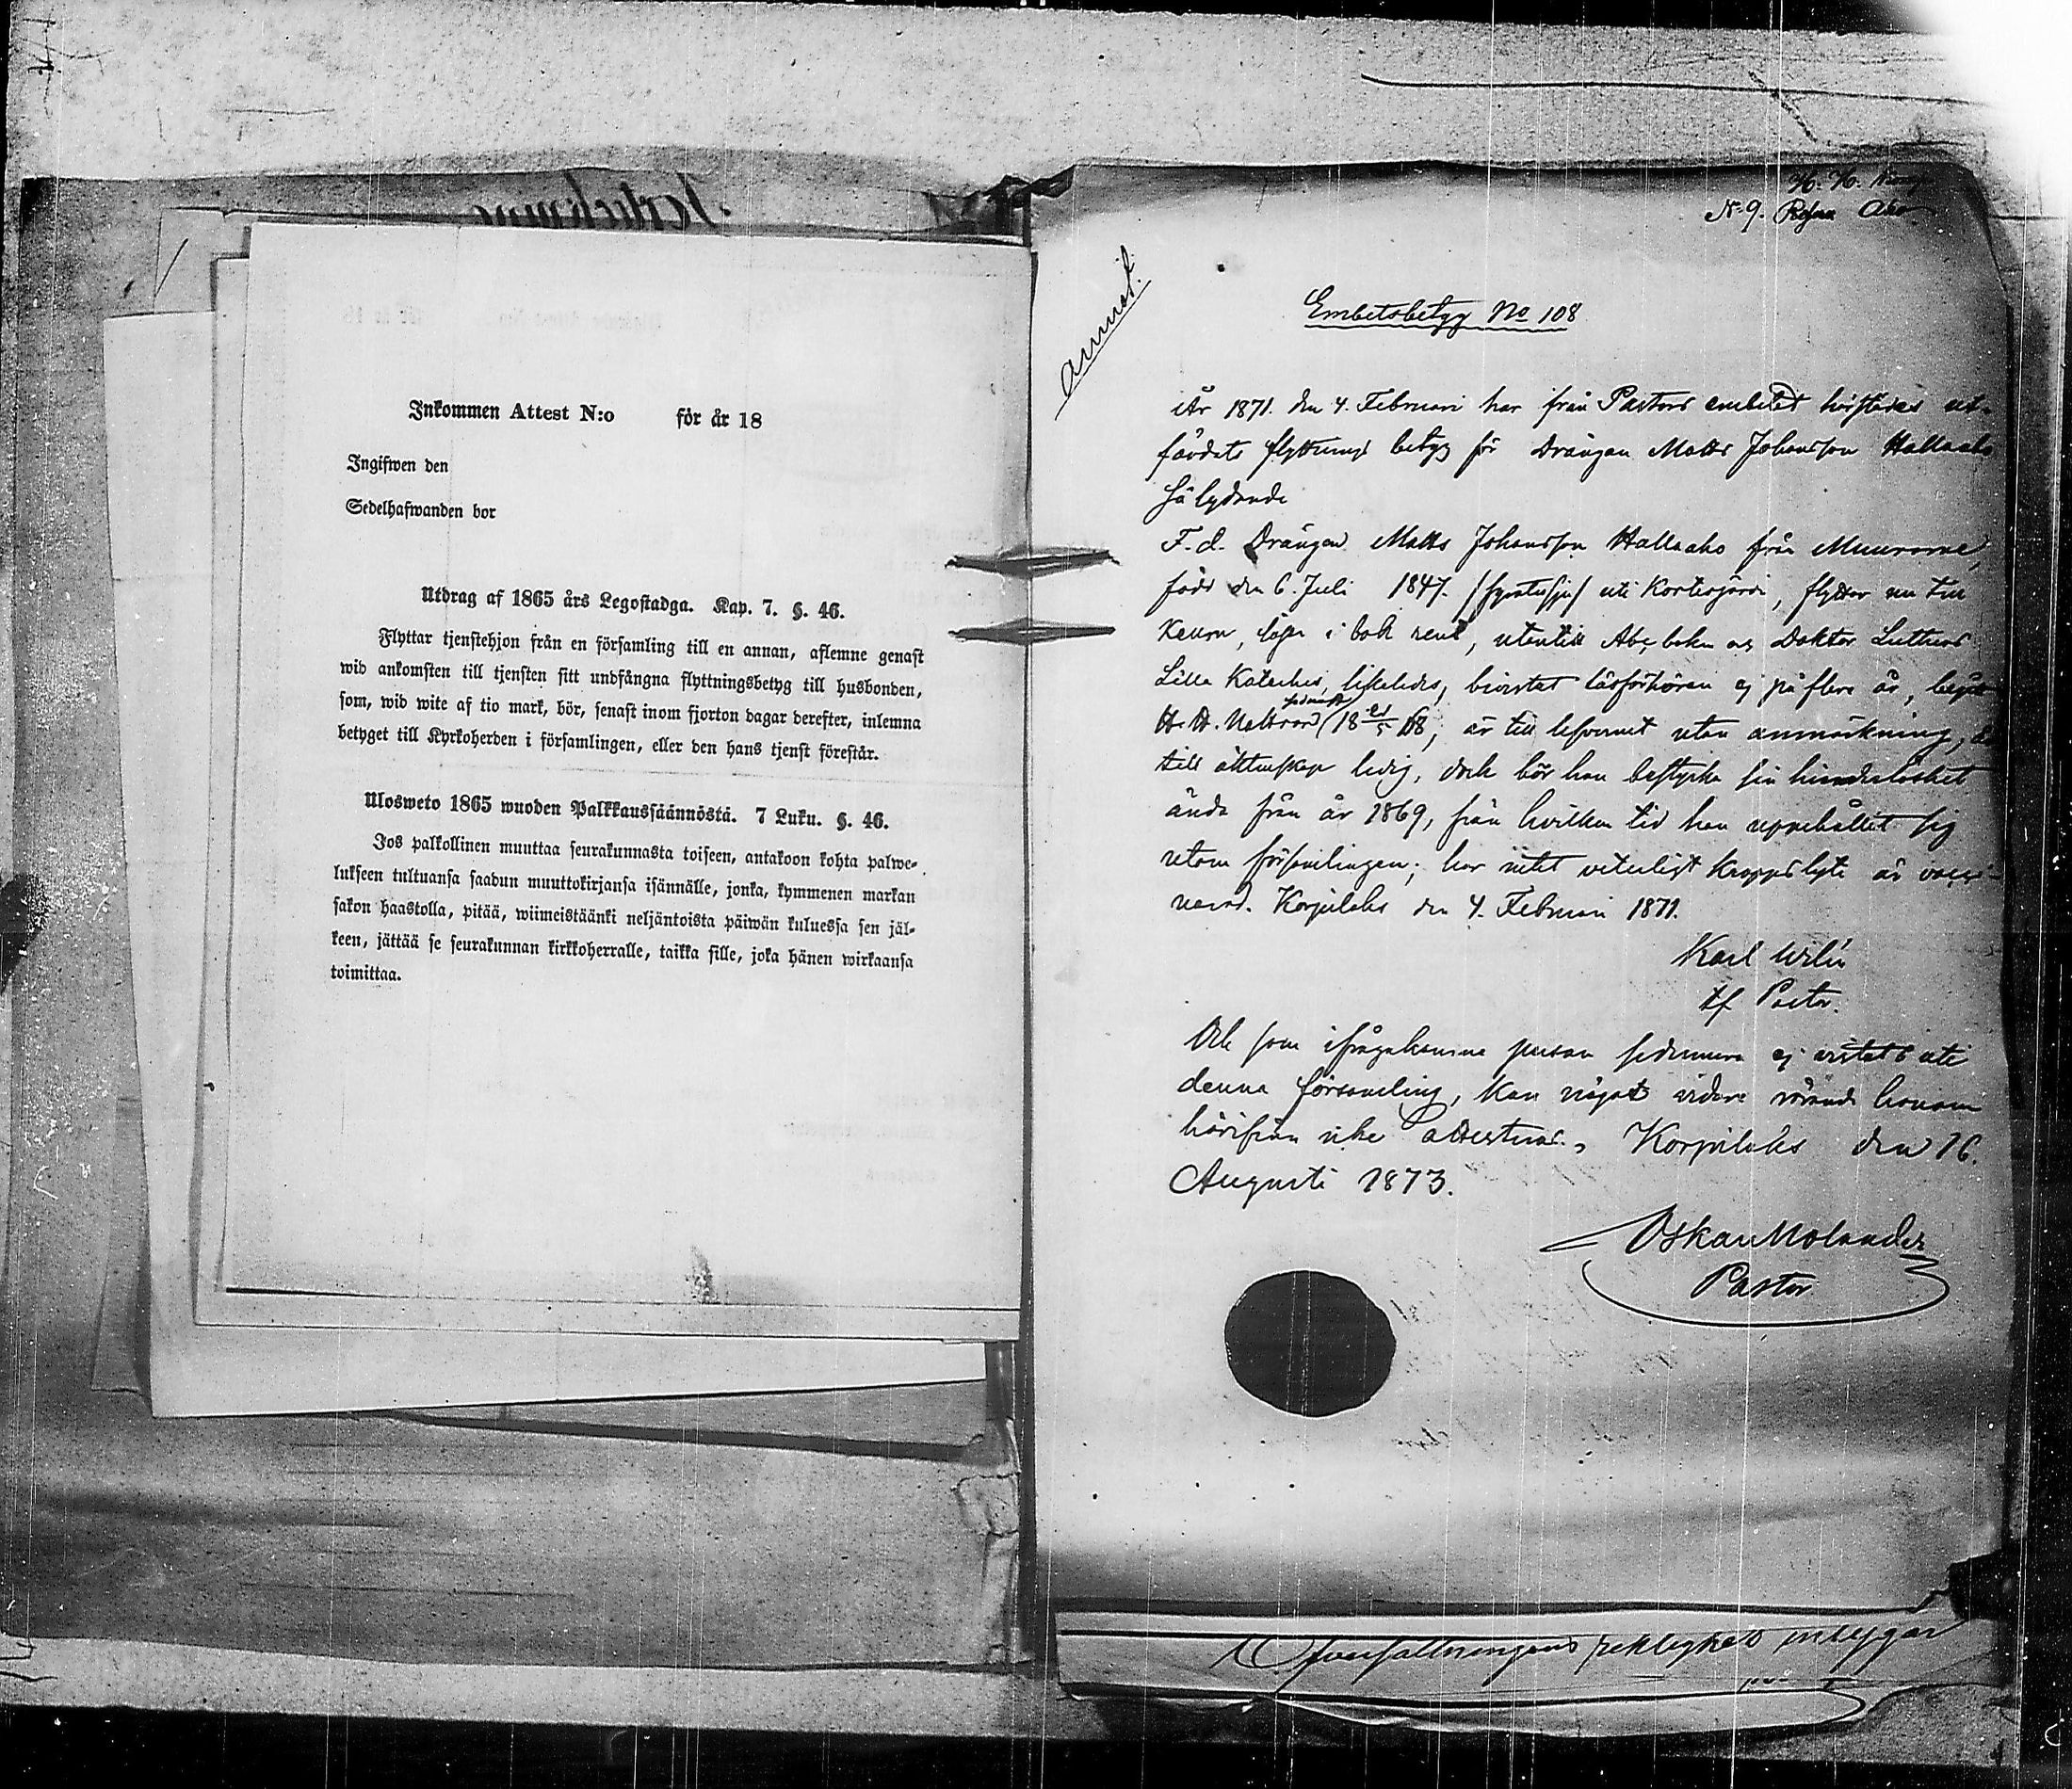 Inkommen Attest N:o för år 18
Ingifwen den
Sedelhafwanden bor
Utdrag af 1865 års Legostadga. Kap. 7. §. 46.
Flyttar tjenstehjon från en församling till en annan, aflemne genast
wid ankomsten till tjensten sitt undfångna flyttningsbetyg till husbonden,
som, wid wite af tio mark, bör, senast inom fjorton dagar derefter, inlemna
betyget till Kyrkoherden i församlingen, eller den hans tjenst förestår.
Ulosweto 1865 wuoden Palkkaussäännöstä. 7 Luku. §. 46.
Jos palkollinen muuttaa seurakunnasta toiseen, antakoon kohta palwe-
lukseen tultuansa saadun muuttokirjansa isännälle, jonka, kymmenen markan
sakon haastolla, pitää, wiimeistäänki neljäntoista päiwän kuluessa sen jäl-
keen, jättää se seurakunnan kirkkoherralle, taikka sille, joka hänen wirkaansa
toimittaa.
N. 9.
annot.
Embetsbetyg No 108
År 1871. den 4. Februari har från Pastors embetet härstädes ut-
färdats flyttnings betyg för Drängen Matts Johansson Hallaaho
så lydande
F.d. Drängen Matts Johansson Hallaaho från Muurame,
född den 6. Juli 1847. uti Kortesjärvi, flyttar nu till
Keuru, läser i bok rent, utantill Abc boken och Doktor Luthers
Lilla Kateches, likaledes, bivistat läsförhören ej på flere år, begått
H. H. Nattvard sednast 18 68, är till lefvernet utan anmärkning,
till äktenskap ledig, dock bör han bestyrka sin hinderslöshet
ända från år 1869, från hvilken tid han uppehållit sig
utom församlingen; har intet veterligt kroppslyte är vacci-
nerad. Korpilaks den 4. Februari 1871.
Karl Wilén
tf Pastor.
Och som ifrågakomne person sedermera ej vistats uti
denna församling, kan något vidare rörande honom
härifrån icke attesteras, Korpilaks den 16.
Augusti 1873.
Oskar Molander
Pastor
Öfversättningens riktighet intygar